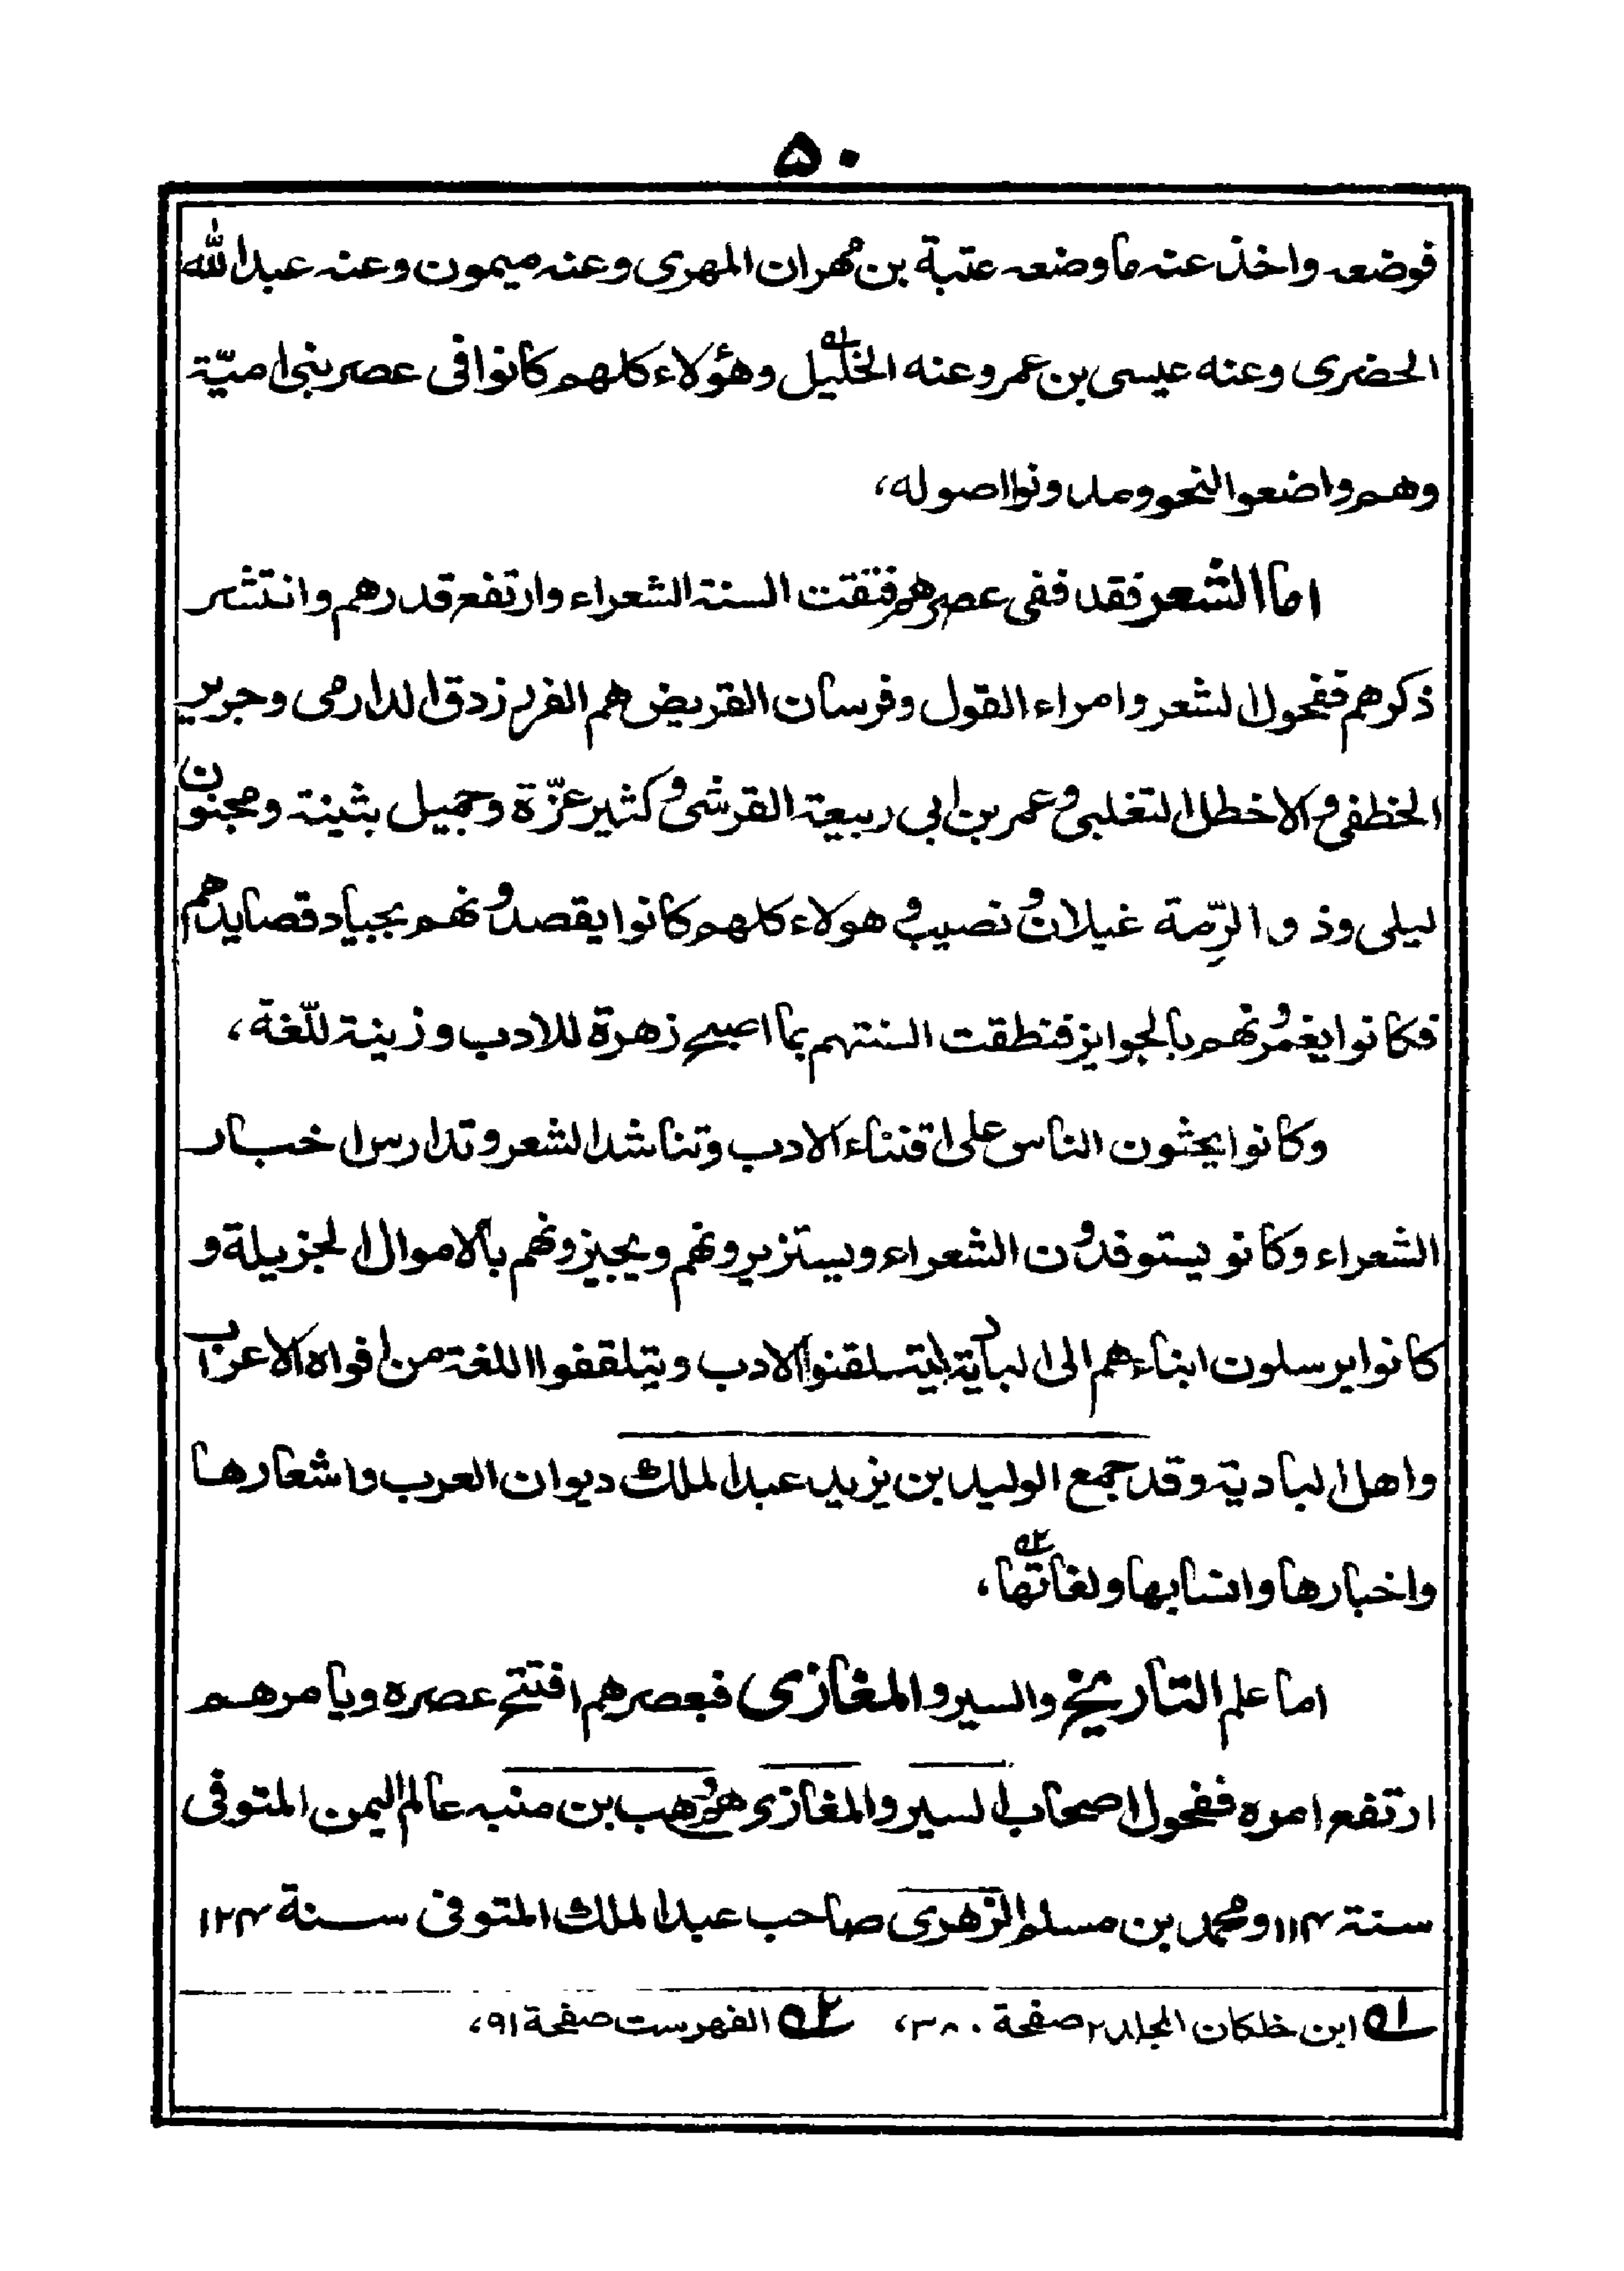 ۵۰
فوضعه واخذ عنه ما وضعه عتبة بن مهران المهری وعنه میمون وعنه عبد الله
الحضری وعنه عیسی بن عمر وعنه الخلیل۱ وهؤلاء کلهم کانوا فی عصر بنی امیّة
وهم واضعوا النحو ومدونوا اصوله،
اما الشعر فقد ففی عصرهم فتقت السنة الشعراء وارتفع قدرهم وانتشر
ذکرهم ففحول الشعر وامراء القول وفرسان القریض هم الفرزدق الدارمی وجریر
الخطفی والاخطل التغلبی وعمر بن ابی ربیعة القرشی وکثیر عزّة وجمیل بثینة ومجنون
لیلی وذو الرِّمة غیلان ونصیب وهولاء کلهم کانوا یقصدونهم بجیاد قصایدهم
فکانوا یغمرونهم بالجوایز فنطقت السنتهم بما اصبح زهرة للادب وزینة للّغة،
وکانوا یحثون الناس علی اقتناء الادب وتناشد الشعر وتدارس اخبار
الشعراء وکانو یستوفدون الشعراء ویستزیرونهم ویجیزونهم بالاموال الجزیلة و
کانوا یرسلون ابناءهم الی البادیة لیتسلقنوا الادب ویتلقفوا اللغة من افواه الاعراب
واهل البادیة وقد جمع الولید بن یزید عبد الملك دیوان العرب واشعارها
واخبارها وانسابها ولغاتها۲،
اما علم التاریخ والسیر والمغازی فبعصرهم افتتح عصره وبامرهم
ارتفع امره ففحول اصحاب السیر والمغازی هو وهب بن منبه عالم الیمن المتوفی
سنة ۱۱۴ ومحمد بن مسلم الزهری صاحب عبد الملك المتوفی سنة ۱۲۴
۱ ابن خلکان المجلد ۲ صفحة ۳۸۰، ۲ الفهرست صفحة ۹۱،